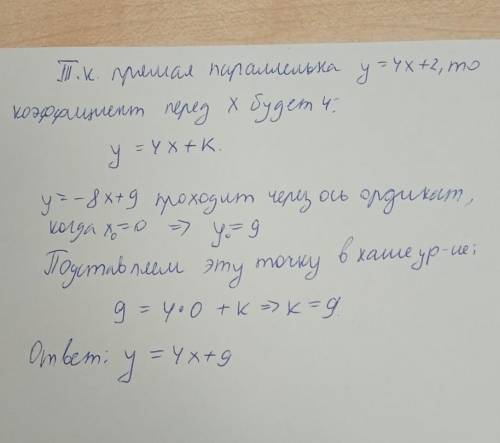 Т.к. прямая параллельна y=4x+2, то
коэффициент перед x будет 4:
y = 4x+k.
y=-8x+9 проходит через ось ординат,
когда x₀=0 => y₀=9
Подставляем эту точку в наше ур-ие:
9 = 4•0 + k => k = 9.
Ответ: y = 4x+9